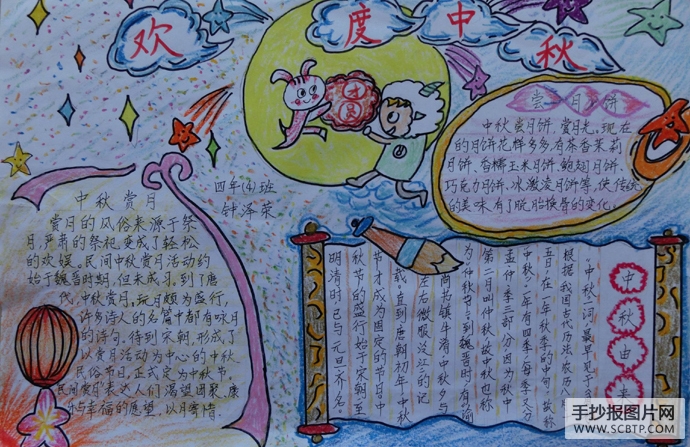 欢度中秋
团圆
尝月饼
中秋尝月饼,赏月光。现在
的月饼花样多多有茶香茉莉
月饼、香糯玉米月饼、鲍翅月饼、
巧克力月饼、冰激凌月饼等,使传统
的美味有了脱胎换骨的变化。
四年(4)班
钟泽荣
中秋赏月
赏月的风俗来源于祭
月,严肃的祭祀变成了轻松
的欢娱。民间中秋赏月活动约
始于魏晋时期,但未成习。到了唐
代,中秋赏月,玩月颇为盛行,
许多诗人的名篇中都有咏月
的诗句。待到宋朝,形成了
以赏月活动为中心的中秋
民俗节日,正式定为中秋节。
民间赏月表达人们渴望团聚、康
与幸福的愿望,以月寄情。
中秋由来
“中秋”一词,最早见于
根据我国古代历法,农历八
五日,在一年秋季的中旬,故称
中秋,一年有四季,每季又分
孟、仲、季三部分,因为秋中
第二月叫仲秋,故中秋也称
为“仲秋节”,到魏晋时,有“谕
尚书镇牛渚,中秋夕与
左右微服泛江”的记
载。直到唐朝初年,中秋
节才成为固定的节日,中
秋节的盛行始于宋朝,至
明清时,已与元旦齐名。
手抄报图片网
WWW.SCBTP.COM